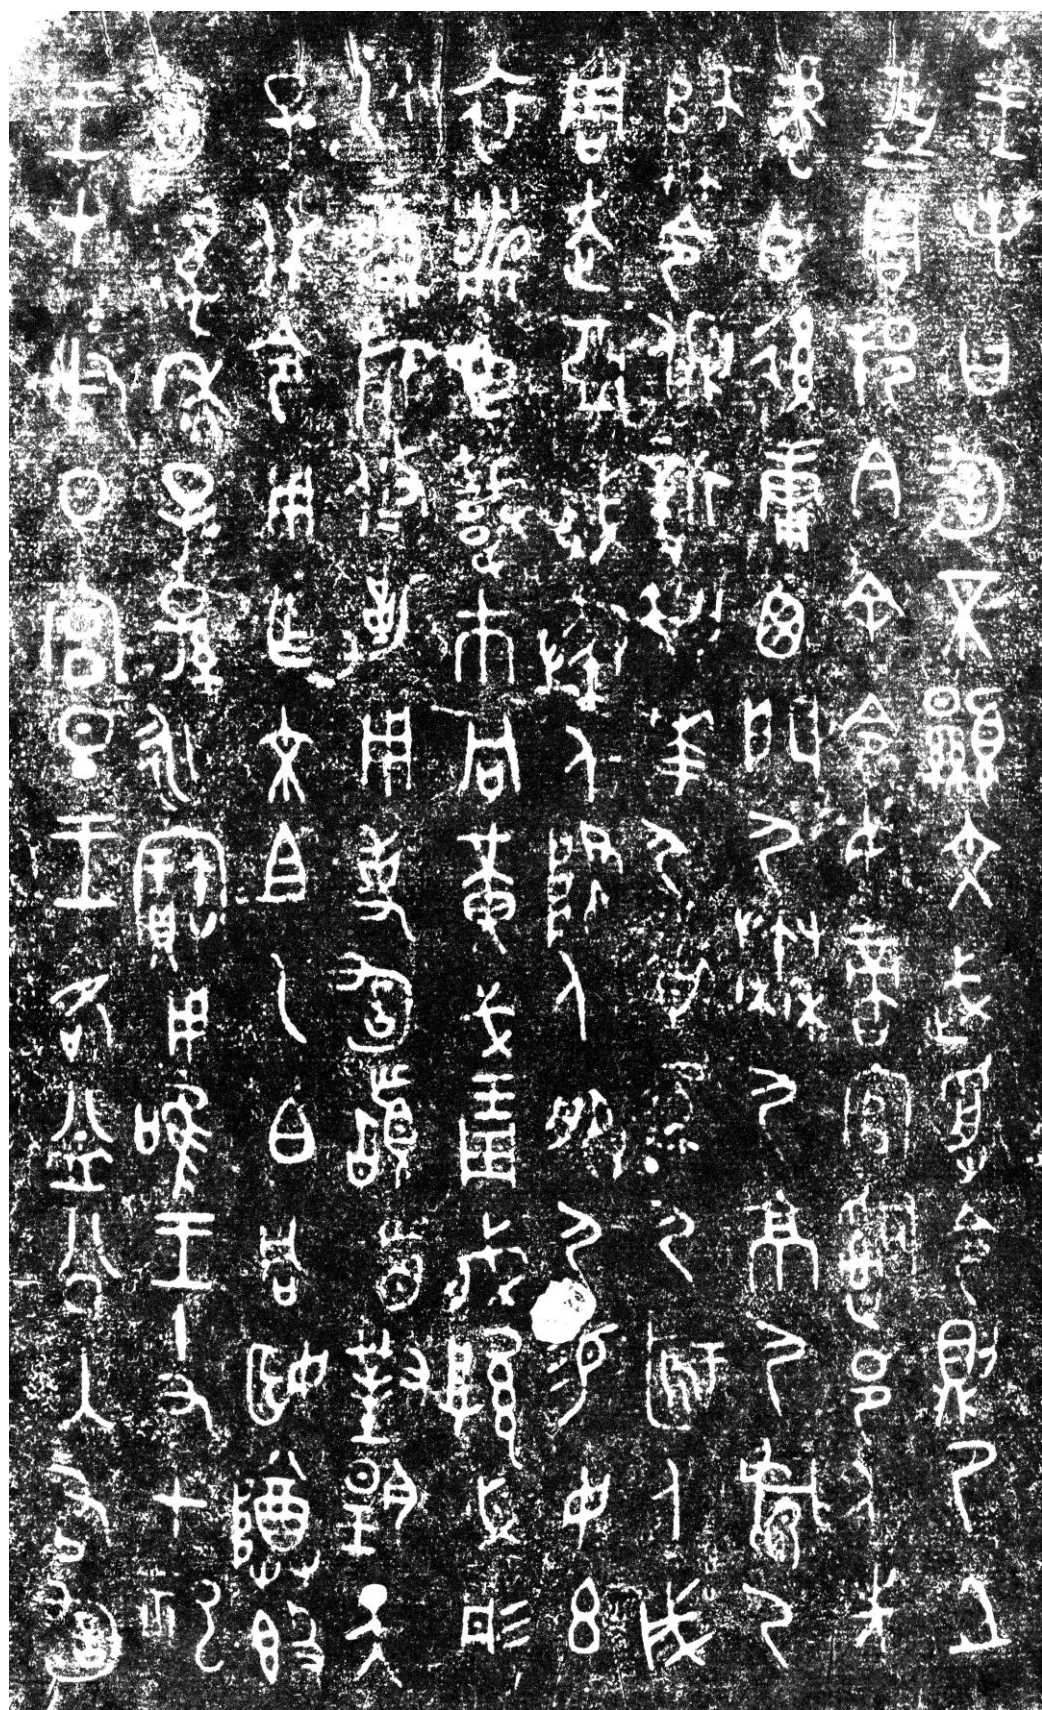 王若曰訇不顯文武受令則乃且
奠周邦今余令女啻官𤔲邑人先
虎臣後庸西門尸秦尸京尸𩁹尸
師笭側新□華尸弁𧱏尸𨟻人成
周走亞戍秦人降人服尸易女玄
衣黹屯載巿冋黃戈琱㦸厚必彤
沙䜌旂攸勒用事訇𩒨首對揚天
子休令用乍文且乙白同姬尊簋
訇萬年子子孫孫永寶用唯王十又七祀
王才射日宮旦王各益公入右訇